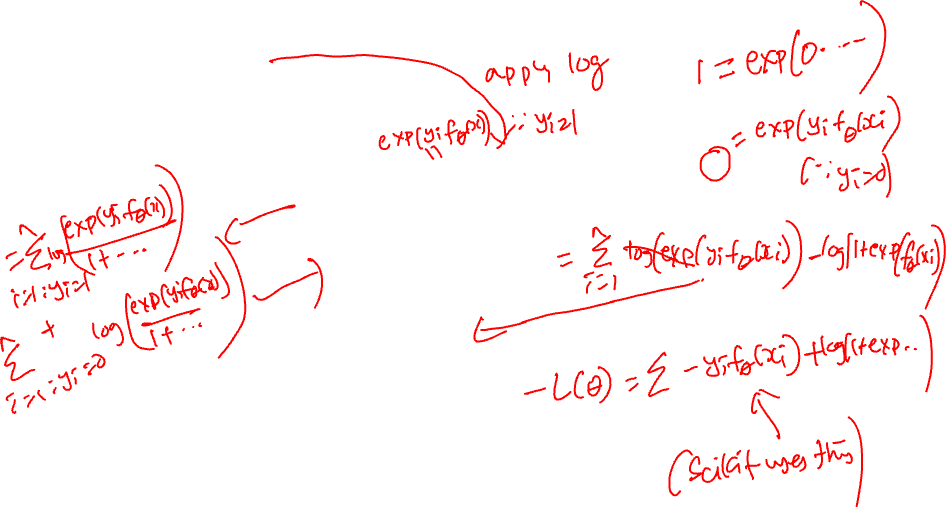 apply log
exp(y_i f_θ(x)) ∵ y_i=1
1 = exp(0 ...)
= exp(y_i f_θ(x_i)
(∵ y_i=0)
= Σ^n_{i=1:y_i=1} log(exp(y_i f_θ(x))/1+...)
+ Σ^n_{i=1:y_i=0} log(exp(y_i f_θ(x))/1+...)
= Σ^n_{i=1} log(exp(y_i f_θ(x_i)) - log(1+exp(f_θ(x_i))
-L(θ) = Σ -y_i f_θ(x_i) + log(1+exp..)
(Scikit uses this)